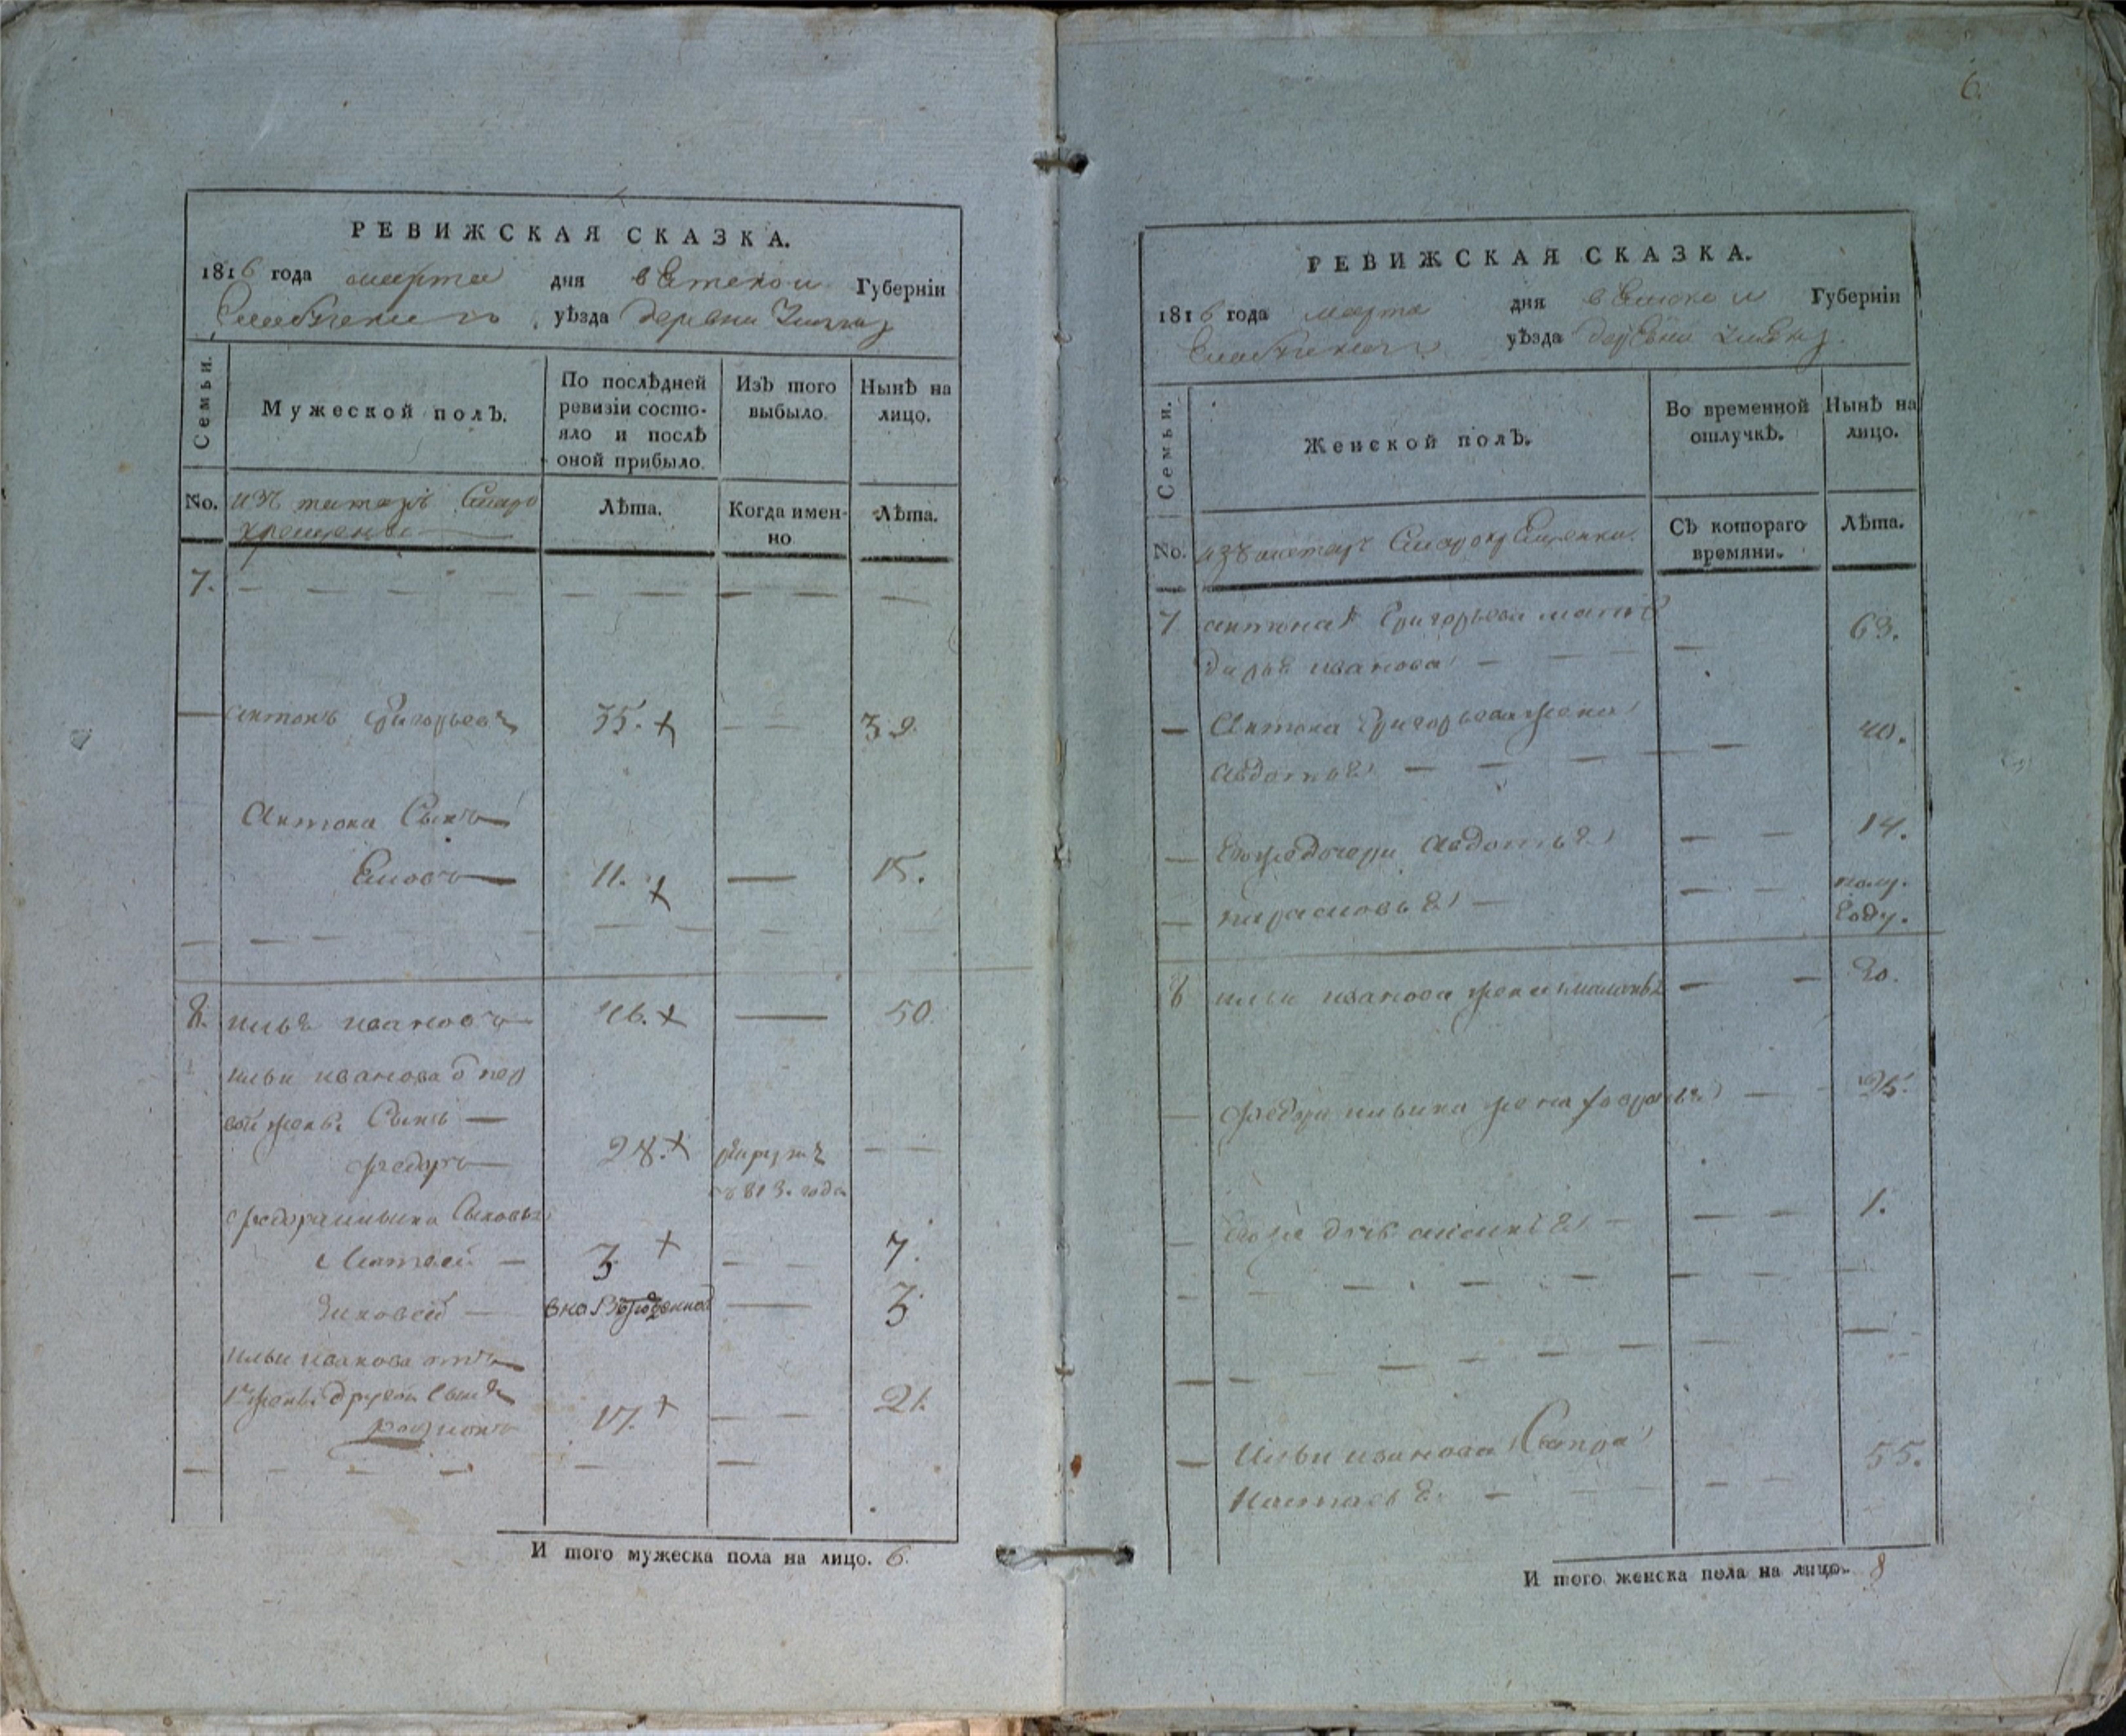 РЕВИЖСКАЯ СКАЗКА.
1816 года марта дня вятской Губерніи
уѣзда деревни
Семьи.
Мужеской полъ.
По послѣдней
ревизіи состо-
яло и послѣ
оной прибыло.
Изъ того
выбыло.
Нынѣ на
лицо.
No.
изъ татаръ старо
крещеные
Лѣта.
Когда имен-
но
Лѣта.
7.
антонъ григорьевъ 35. 39.
Антона Сынъ
11. 15.
8. илья ивановъ 46. 50.
ильи иванова от пер
вой жены Сынъ
федоръ 28.
813. года
федора ильина Сыновья
Матвей 3 7.
вновьрожденной 3
ильи иванова отъ
1й жены другой Сынъ
родионъ 17. 21.
И того мужеска пола на лицо. 6.
6.
РЕВИЖСКАЯ СКАЗКА.
1816 года марта дня вятской Губерніи
уѣзда деревни
Семьи.
Женской полъ.
Во временной
отлучкѣ.
Нынѣ на
лицо.
No.
изъ татаръ Старокрещенки.
Съ котораго
времяни.
Лѣта.
7 антона григорьева мать
дарья иванова 63.
Антона григорьева жена
авдотья 40.
Егоже дочери авдотья 14.
парасковья полу.
году.
8 ильи иванова жена маланья
федора ильина жена
Егоже дочь 1.
Ильи иванова Сестра
Настасья 55.
И того женска пола на лицо. 8